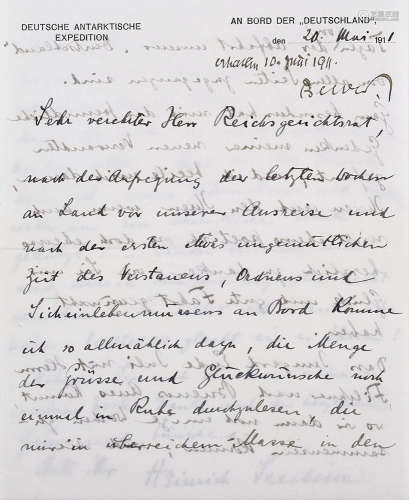 DEUTSCHE ANTARKTISCHE
EXPEDITION
AN BORD DER „DEUTSCHLAND",
den 20. Mai 1911
erhalten 10. Juni 1911.
Sehr verehrter Herr Reichsgerichtsrat,
nach der Aufregung der letzten Wochen
an Land vor unserer Ausreise und
nach der ersten etwas ungemütlichen
Zeit des Verstauens, Ordnens und
Sicheinlebenmüssens an Bord komme
ich so allmählich dazu, die Menge
der Grüsse und Glückwünsche noch
einmal in Ruhe durchzulesen, die
mir in überreichem Masse in den